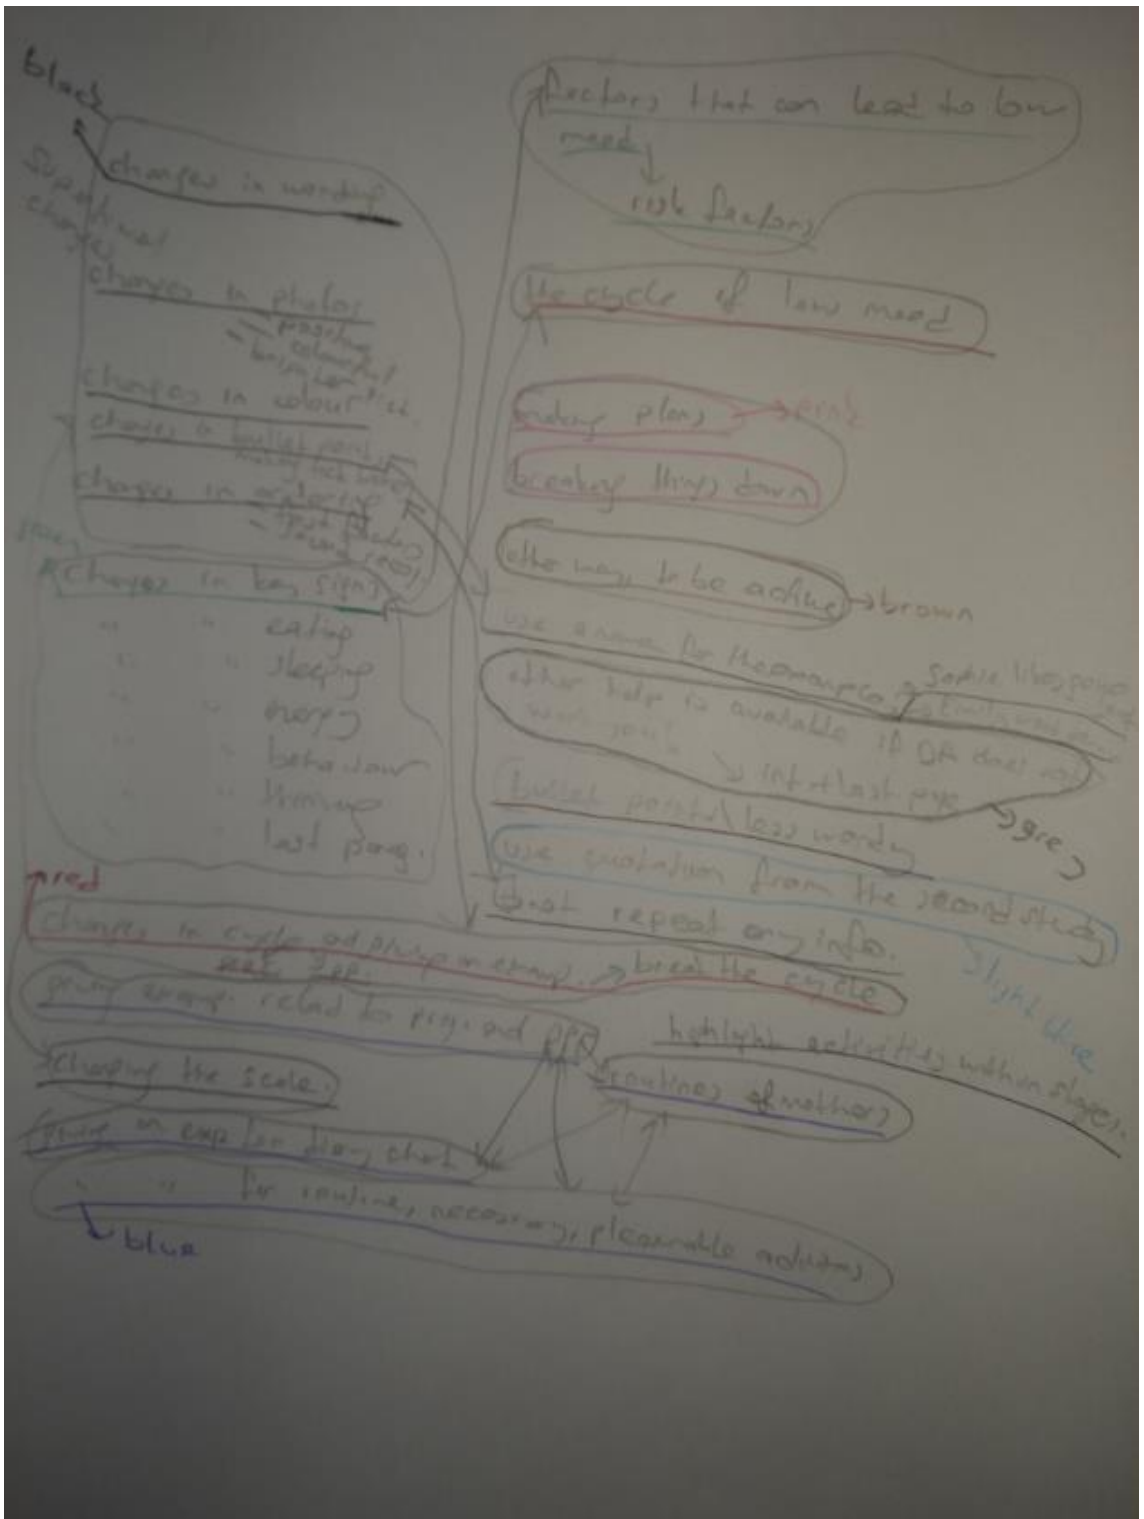 black
changes in wording
Superficial
changes
changes in photos
positive
colourful
changes in colour
changes in bullet points
changes in
green
changes in key signs
" " eating
" " sleeping
" " energy
" " behaviour
" " thinking
" " last parag.
red
changes in cycle and giving an examp. → break the cycle
giving examp. related to preg. and ppp
changing the scale.
giving an exp for diary chart
" " for routine, necessary, pleasurable activities
blue
factors that can lead to low
mood
risk factors
the cycle of low mood
making plans → pink
breaking things down
other ways to be active → brown
use a name for the
other help is available if GSH does not
work → inf. + last page
grey
bullet points \ less wordy
use quotation from the second study
light blue
not repeat any info.
highlight activities within stages.
routines of mothers